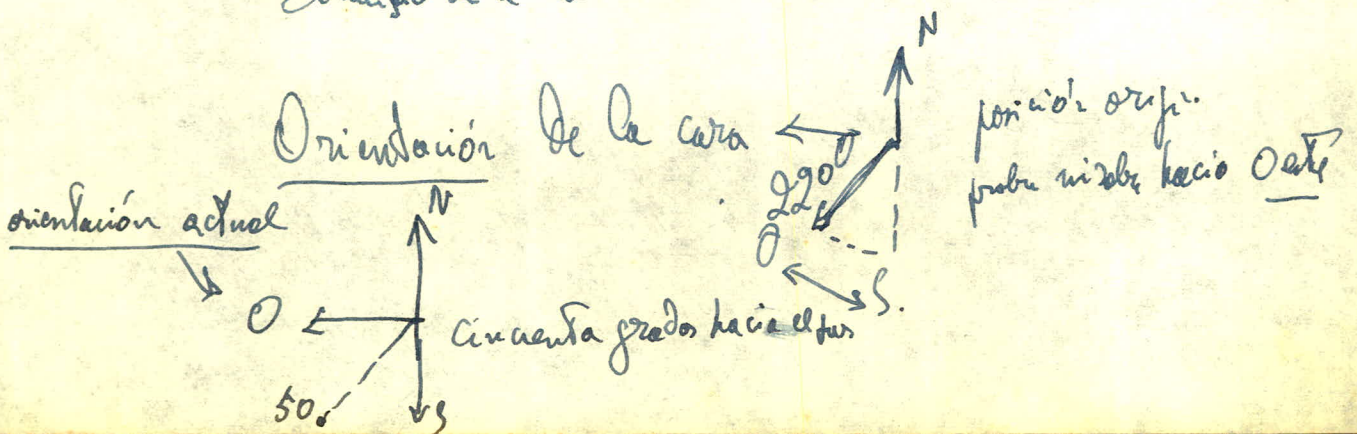 Orientación de la cara
N
posición orig.
proba miraba hacia Oeste
O
220º
O
S.
orientación actual
N
O
Cincuenta grados hacia el sur
50º
S